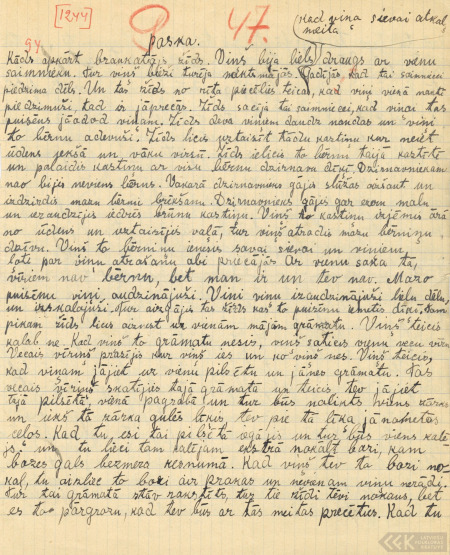 [1244]
47.
(Kad viņa sievai atkal
meita
94
paska.
Kāds apkārt braukātājs žīds. Viņš bija liels draugs ar vienu
saimnieku. Tur viņš bieži turēja naktsmājas. Gadijās, kad tai saimniecei
piedzima dēls. Un tas žīds no rīta piecēlies teica, kad viņi vienā naktī
piedzimuši tad ir jāprecās. Žīds sacija tai saimniecei, kad viņai tas
puisēns jāatdod viņam. Žīds deva viņiem daudz naudas un viņi
to bērnu atdevuši. Žīds licis uztaisīt tādu kastiņu kur neiet
ūdens iekšā un vāku virsū. Žīds ielicis to bērnu taijā kastītē
un palaidis kastiņu ar visu bērnu dzirnavu dīķī. Dzirnavniekam
nav bijis neviens bērns. Vakarā dzirnavnieks gājis slūžas aizšaut un
izdzirdis mazu bērnu brēkšanu. Dzirnavnieks gājis gar ezera malu
un ieraudzījis ūdrēs brūnu kastiņu. Viņš to kastiņu izņēmis ārā
no ūdens un uztaisījis vaļā, tur viņš atradis mazu bērniņu
dzīvu. Viņš to bērniņu ienesis savai sievai un viņiem,
loti par viņu atrašanu abi priecājās. Ar vienu saka tā,
visiem nav bērnu, bet man ir un tev nav. Mazo
puisēnu viņi audzinājuši. Viņi viņu izaudzinājuši lielu dēlu,
un izskolojuši. Tur aizgājis tas žīds kas to puisēnu iemetis dīķī, tam
pikam žīds licis aiznest uz vienām mājām grāmatu. Viņš teicis
kalab ne. Kad viņš to grāmatu nesis, viņš saticis viņu vecu vīru.
Vecais vīriņš prasijis kur viņš ies un ko viņš nes. Viņš teicis,
kad viņam jāiet uz vienu pilsētu un jānes grāmatu. Tas
vecais vīriņš skatijis tajā grāmatā un teicis, tev jāiet
tajā pilsētā, vienā pagrabā un tur būs nolikts viens zārks
un iekš tā zārka gulēs līķis tev pie tā līķa jānometas
celos. Kad tu esi tai pilsētā ogājis un tur būs viens kalē-
js, un tu liec tam kalējam ekstra nokalt bozi, kam
bozes gals bezmers kesnumā. Kad viņš tev to bozi no-
kal, tu aizliec to bozi aiz prakas un nevienam viņu nerādi.
Tur tas grāmatā stāv rakstits, tur tie žīdi tevi nokaus, bet
es to pārgrozu, kad tev būs ar tās meitas precētus. Kad tu